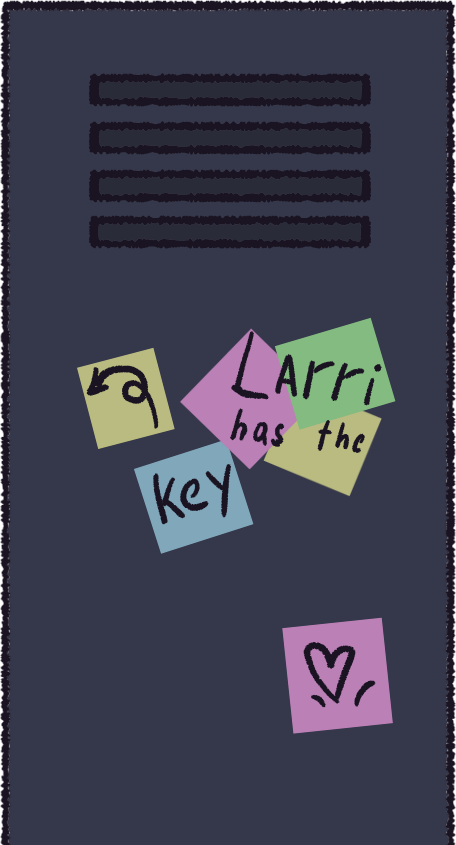 LArri
has the
key